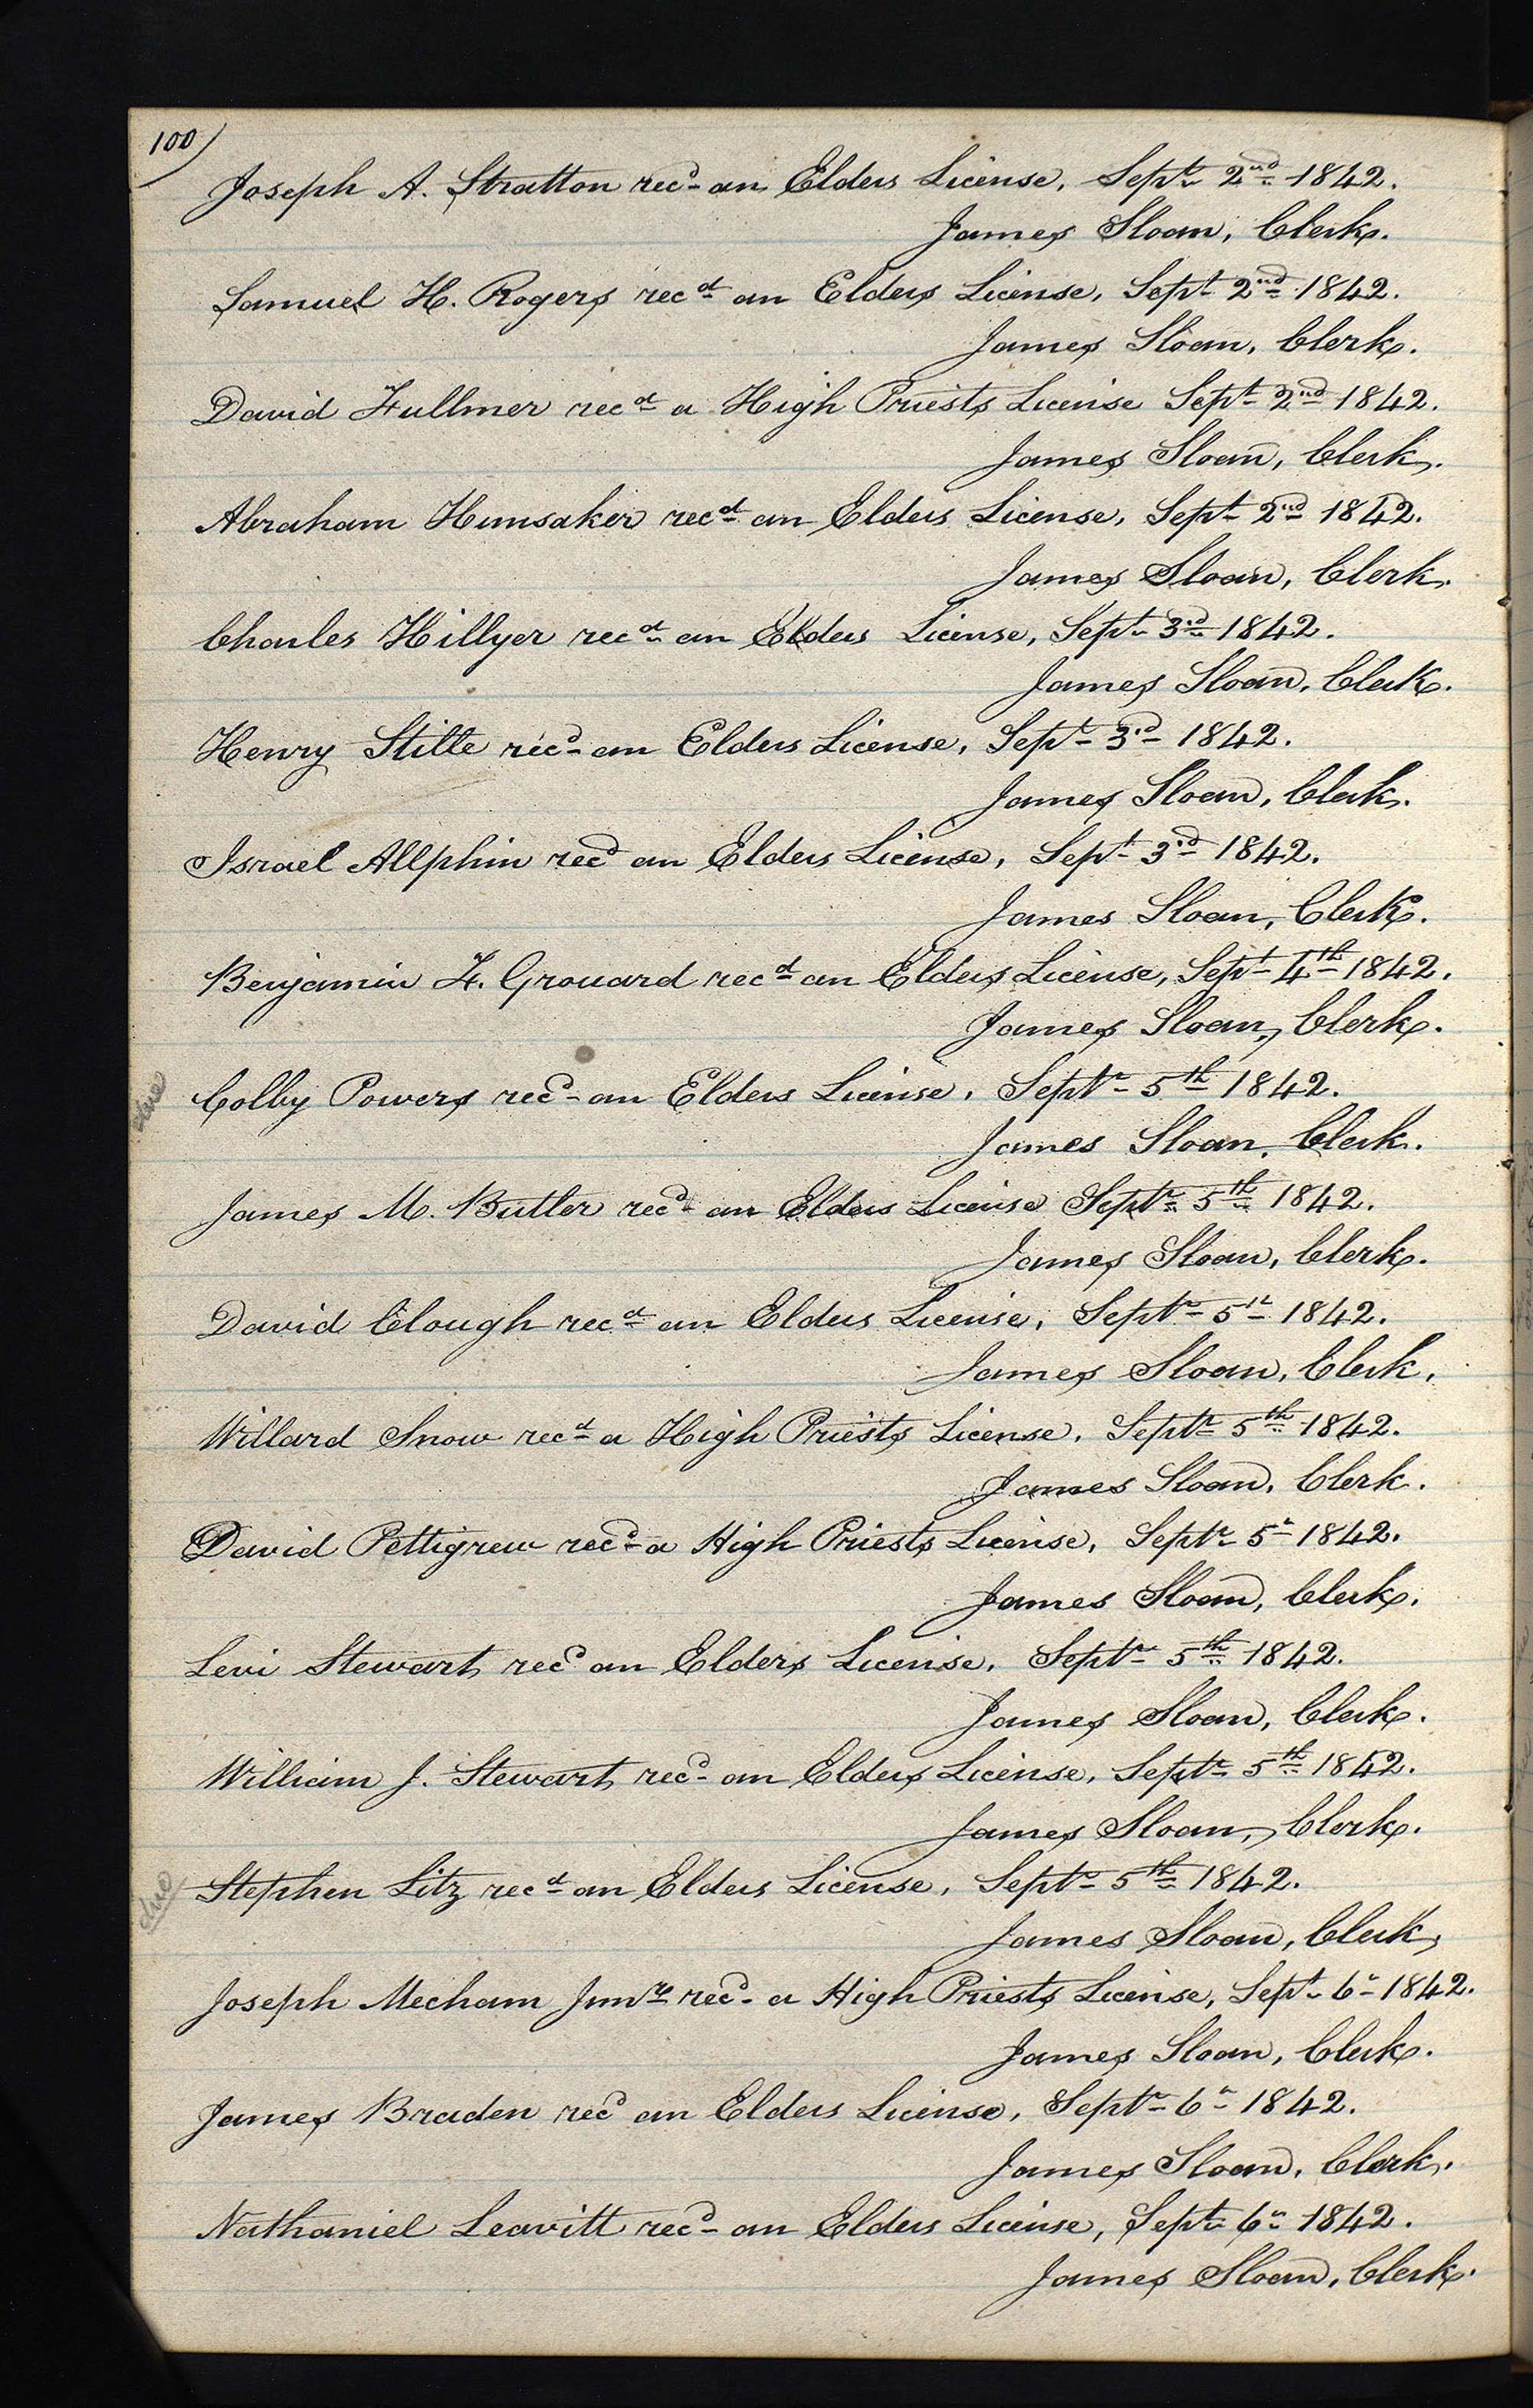 100)
Joseph A. Stratton recd an Elders License, Septr 2nd 1842.
James Sloan, Clerk.
Samuel H. Rogers recd an Elders License, Sept 2nd 1842.
James Sloan, Clerk.
David Fullmer recd a High Priests License Sept 2nd 1842.
James Sloan, Clerk.
Abraham Hunsaker recd an Elders License, Sept 2nd 1842.
James Sloan, Clerk.
Charles Hillyer recd an Elders License, Sept 3rd 1842.
James Sloan, Clerk.
Henry Stille recd an Elders License, Sept 3rd 1842.
James Sloan, Clerk.
Israel Allphin recd an Elders License, Sept 3rd 1842.
James Sloan, Clerk.
Benjamin F. Grouard recd an Elders License, Sept 4th 1842.
James Sloan, Clerk.
Colby Powers recd an Elders License, Septr 5th 1842.
James Sloan, Clerk.
James M. Butler recd an Elders License Septr 5th 1842.
James Sloan, Clerk.
David Clough recd an Elders License, Septr 5th 1842.
James Sloan, Clerk.
Willard Snow recd a High Priests License, Septr 5th 1842.
James Sloan, Clerk.
David Pettigrew recd a High Priests License, Septr 5th 1842.
James Sloan, Clerk.
Levi Stewart recd an Elders License, Septr 5th 1842.
James Sloan, Clerk.
William J. Stewart recd an Elders License, Septr 5th 1842.
James Sloan, Clerk.
due Stephen Litz recd an Elders License, Septr 5th 1842.
James Sloan, Clerk,
Joseph Mecham Junr recd a High Priests License, Sept 6th 1842.
James Sloan, Clerk.
James Braden recd an Elders License, Septr 6th 1842.
James Sloan, Clerk.
Nathaniel Leavitt recd an Elders License, Sept 6th 1842.
James Sloan, Clerk.